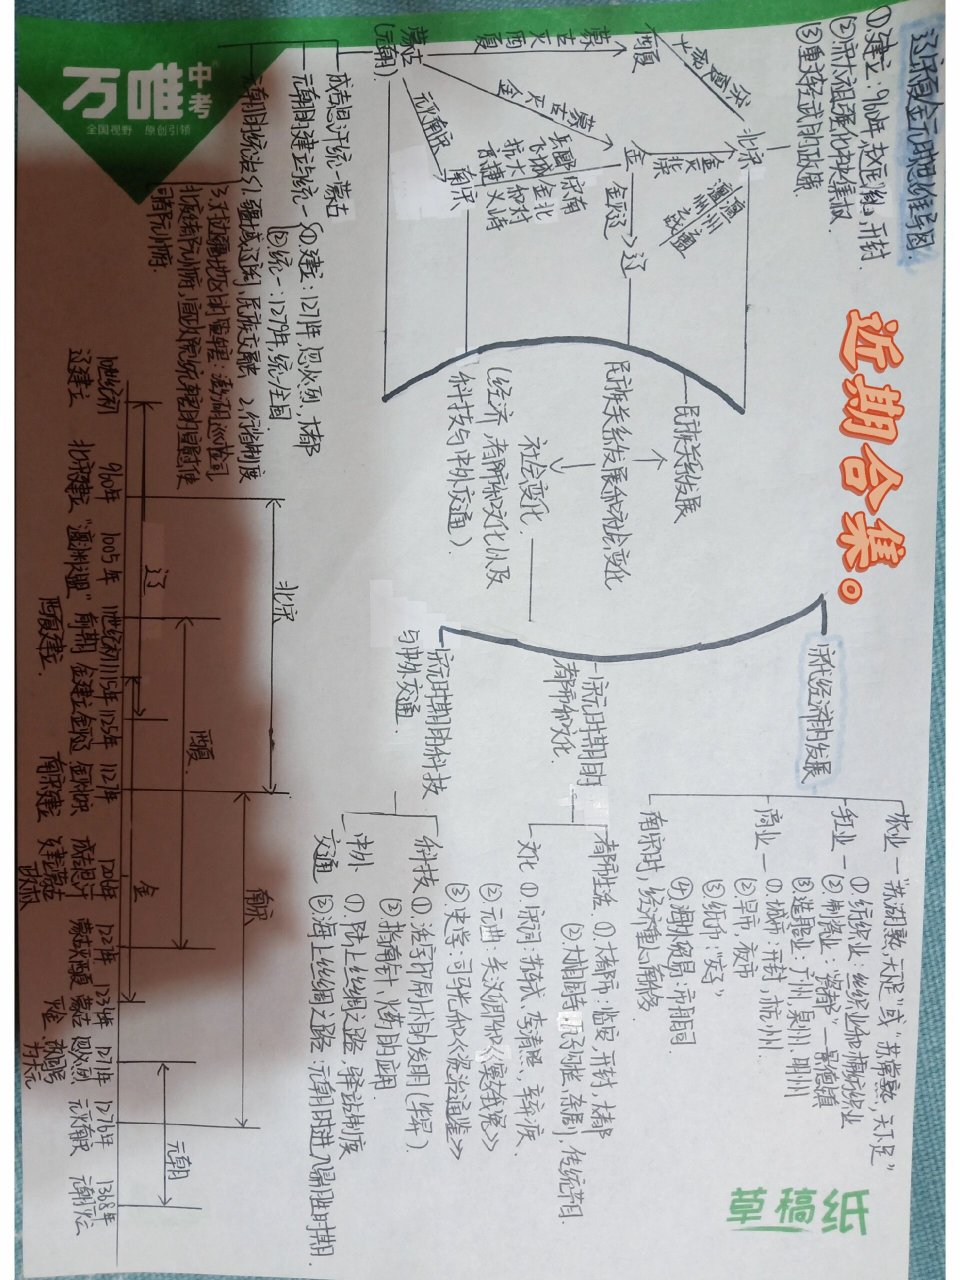 辽宋夏金元时期思维导图
①建立：960年,赵匡胤,开封
②宋太祖强化中央集权
③重文轻武的政策
近期合集。
万唯中考
全国视野 原创引领
北宋
西夏
金
辽
金灭辽
澶州之盟
蒙古灭西夏
蒙古灭金
元灭南宋
南宋
蒙古
(元朝)
成吉思汗统一蒙古
元朝的建立与统一
①建立：1271年,忽必烈,大都
②统一：1279年,统一全国
元朝的统治
1.疆域辽阔,民族交融 2.行省制度
3.对边疆地区的管辖：澎湖巡检司
北庭都元帅府,宣政院统辖的宣慰使
司都元帅府.
民族关系发展
民族关系发展和社会变化
社会变化
(经济,都市和文化以及
科技与中外交通).
宋代经济的发展
农业—“苏湖熟,天下足”或“苏常熟,天下足”
手工业—①纺织业：丝织业和棉纺织业
②制瓷业：“瓷都”—景德镇
③造船业：广州,泉州,明州
商业—①城市：开封,杭州
②早市,夜市
③纸币：“交子”
④海外贸易：市舶司
南宋时,经济重心南移
宋元时期的
都市和文化
都市生活 ①大都市：临安,开封,大都
②大相国寺,瓦子,勾栏,杂剧,传统节日.
文化 ①宋词：苏轼,李清照,辛弃疾
②元曲：关汉卿和《窦娥冤》
③史学：司马光和《资治通鉴》
宋元时期的科技
与中外交通
科技 ①活字印刷术的发明(毕昇)
②指南针,火药的应用
中外交通 ①陆上丝绸之路,驿站制度
②海上丝绸之路：元朝时进入鼎盛时期.
北宋
南宋
辽
西夏
金
元朝
10世纪初
辽建立
960年
北宋建立
1005年
“澶渊之盟”
11世纪前期
西夏建立
1115年
金建立
1125年
金灭辽
1127年
金灭北宋
南宋建立
1206年
成吉思汗
建立蒙古
政权
1227年
蒙古灭西夏
1234年
蒙古灭金
1271年
忽必烈
改国号
为大元
1276年
元灭南宋
1368年
元朝灭亡
草稿纸